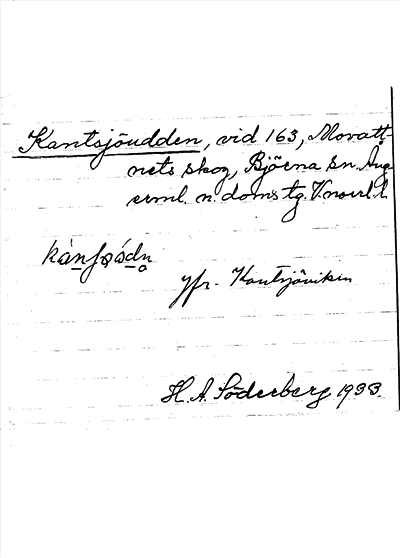 Kantsjöudden, vid 163, Moratt-
nets skog, Björna sn. Ång
erml. n. doms tg. V.norrl. l.
jfr. Kantsjöviken
H. A. Söderberg 1933.